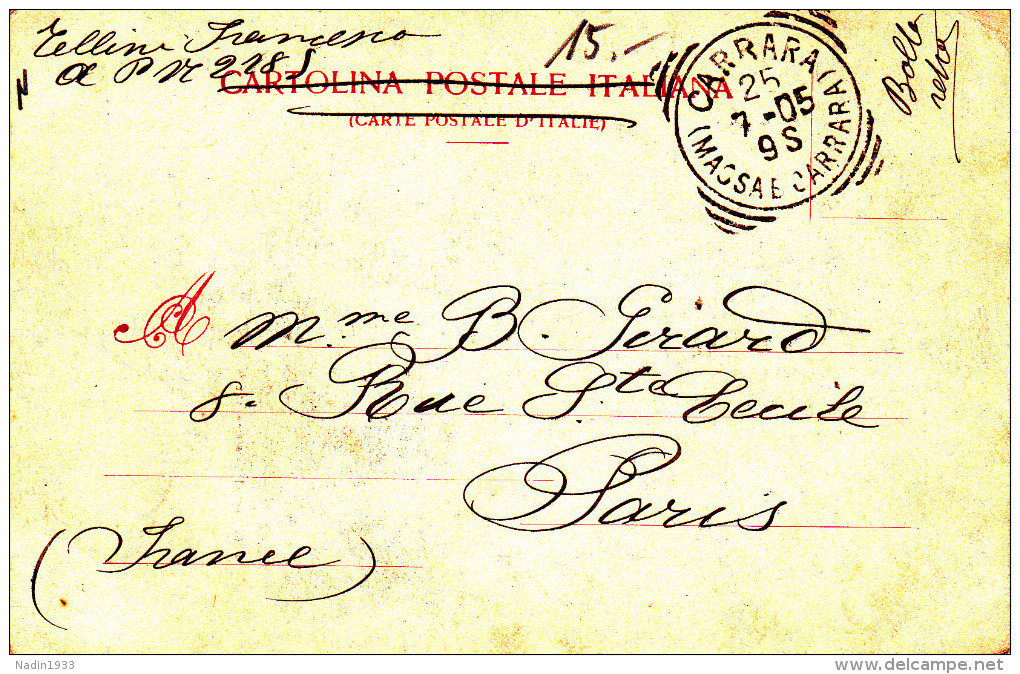 Tellini Francesco
15.-
CARTOLINA POSTALE ITALIANA
(CARTE POSTALE D'ITALIE)
CARRARA
25
7-05
9S
(MASSA E CARRARA)
Bollo
A Mme B. Girard
8. Rue Ste Cecile
Paris
(France)
Nadin1933
delcampe.net